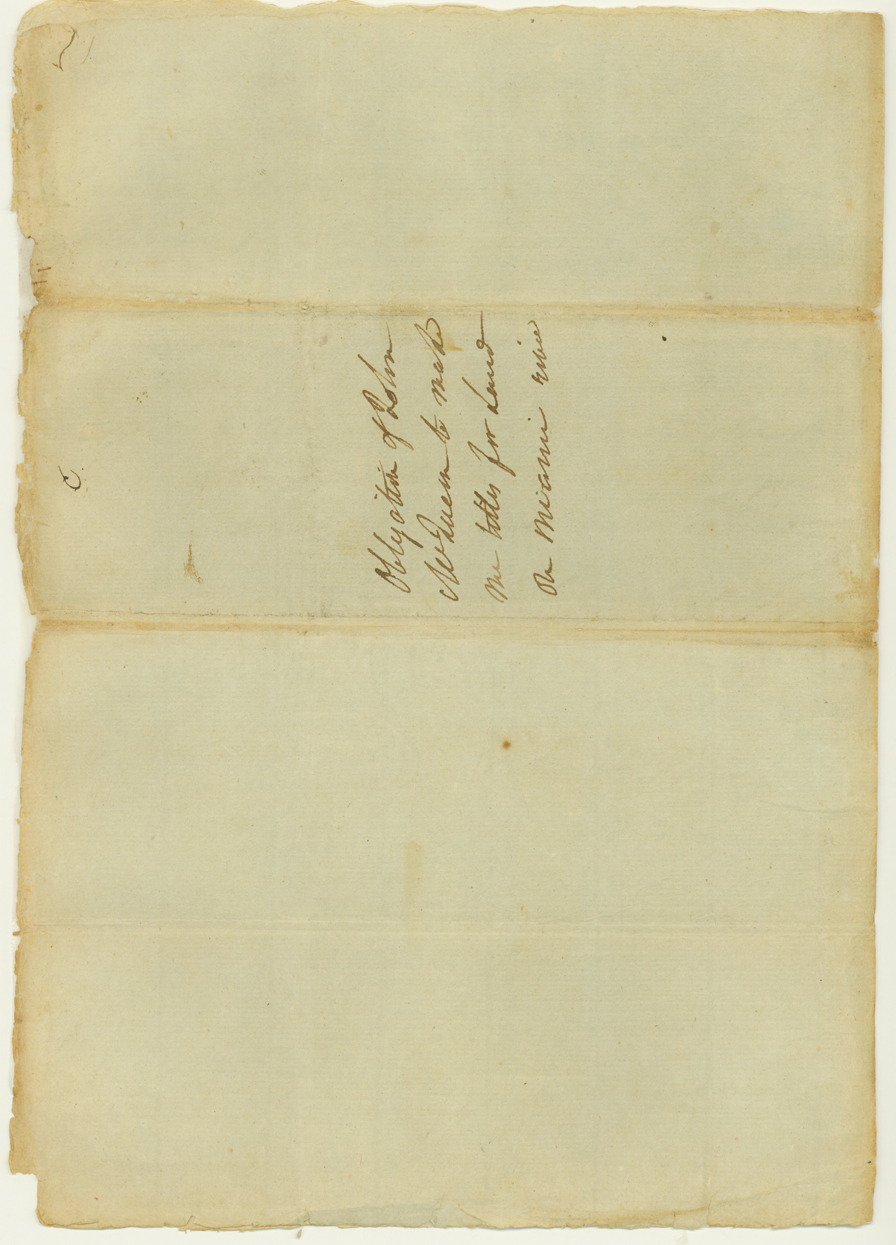 C.
Obligation of John
McQueen to make
me titles for Land
on Miamie River